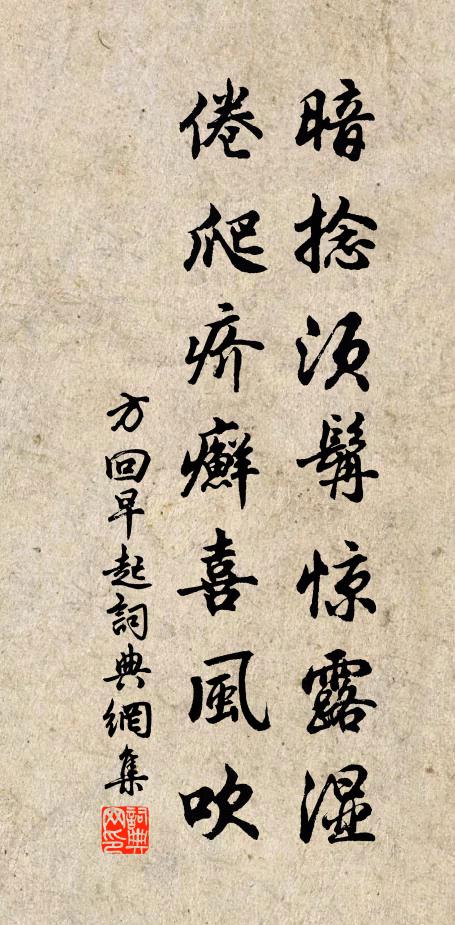 暗捻须髯惊露湿
倦爬疥癣喜風吹
方回早起詞典網集
詞典网印